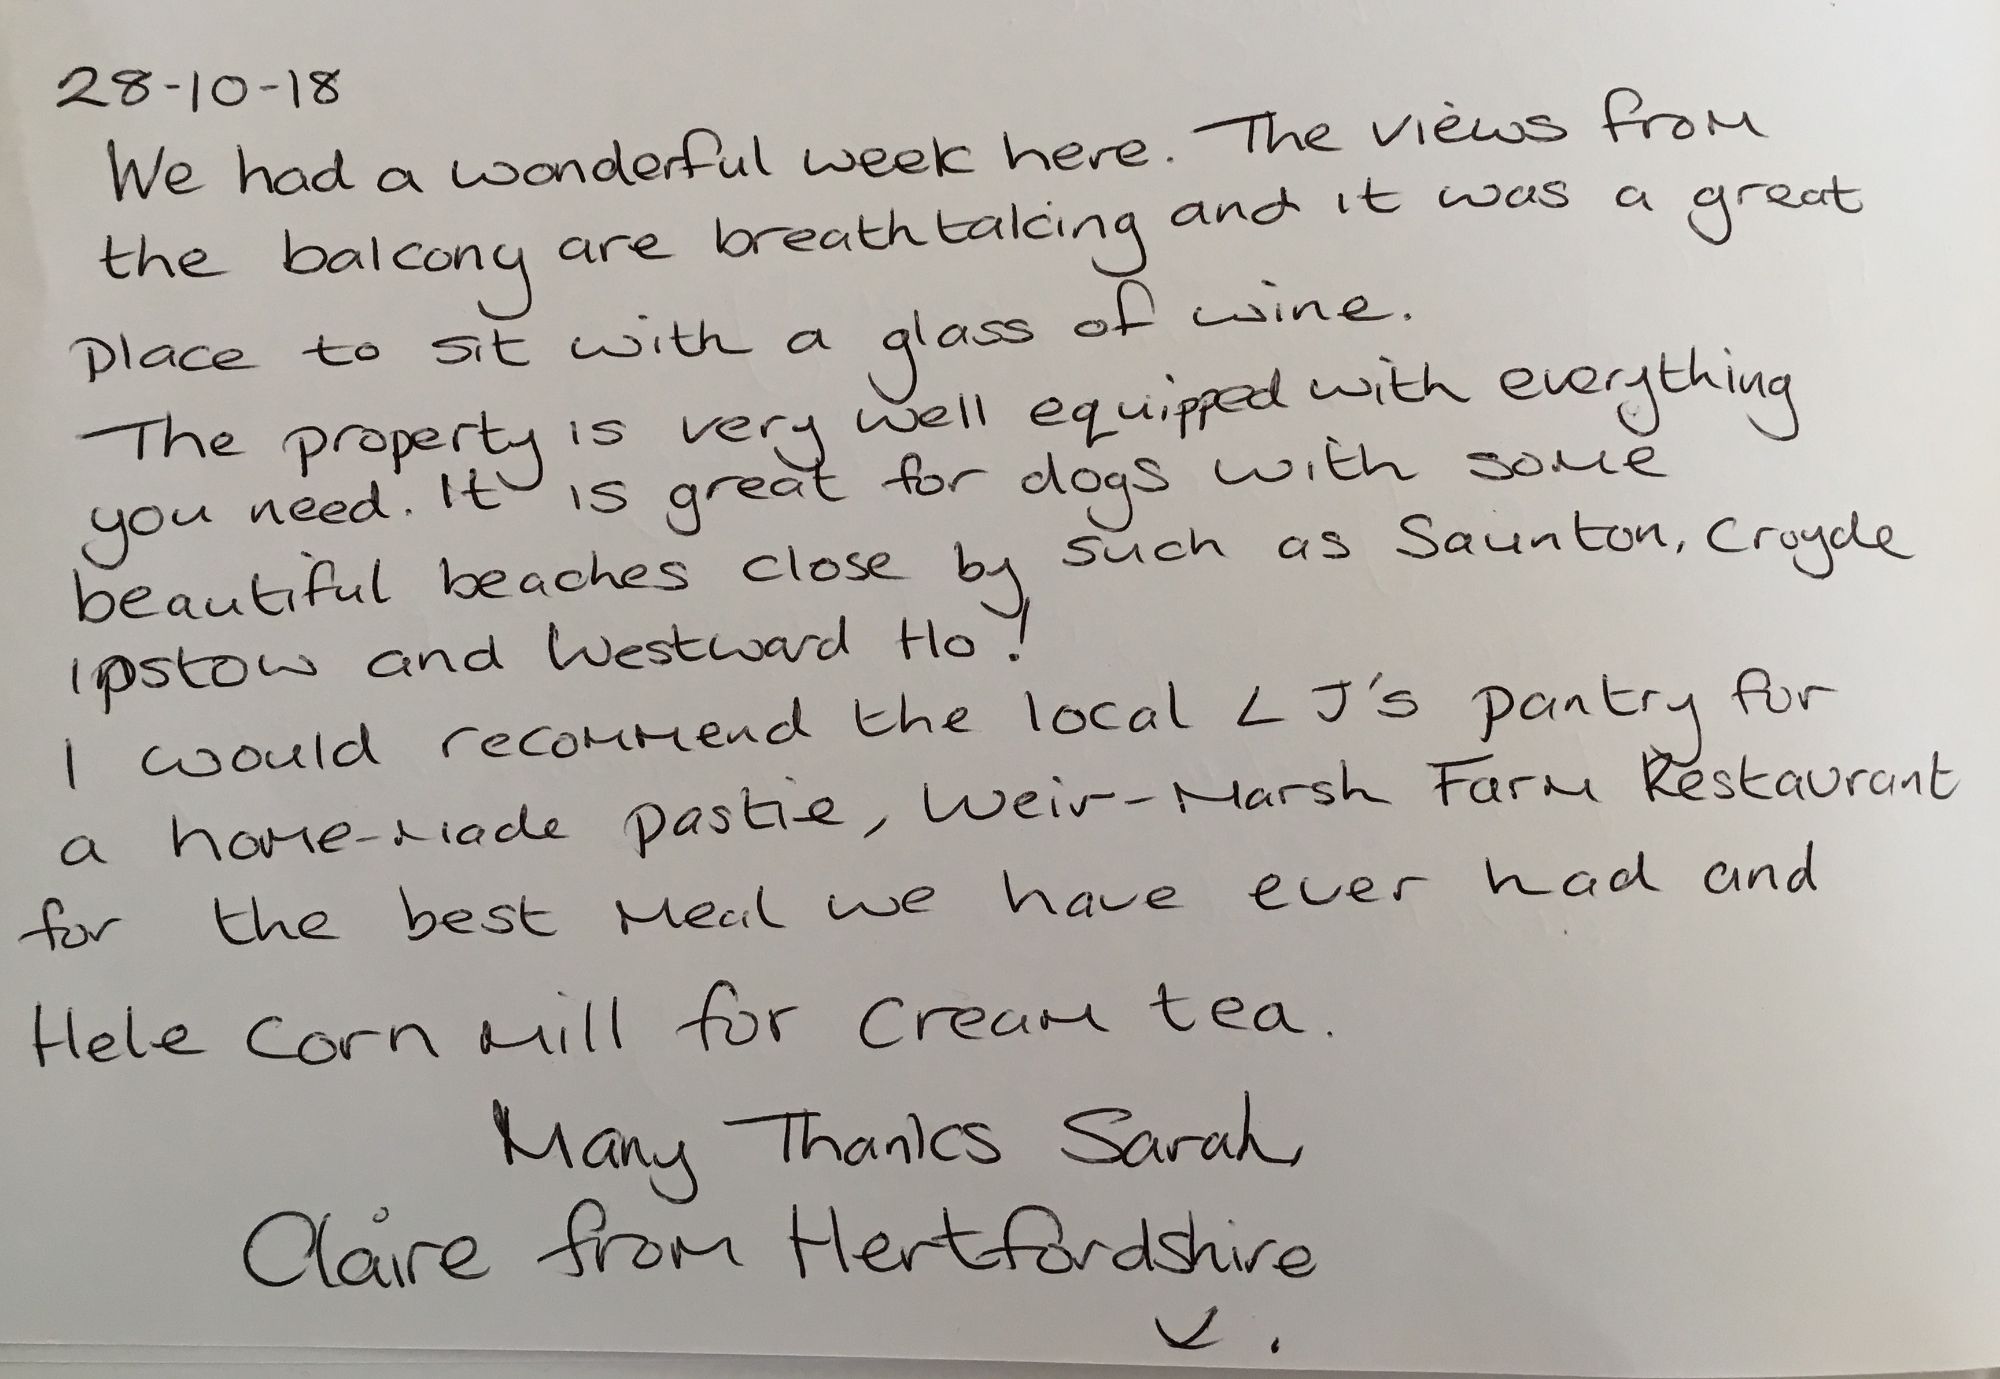 28-10-18
We had a wonderful week here. The views from
the balcony are breathtaking and it was a great
place to sit with a glass of wine.
The property is very well equipped with everything
you need. It is great for dogs with some
beautiful beaches close by such as Saunton, Croyde
ipstow and Westward Ho!
I would recommend the local LJ's pantry for
a home-made pastie, Weir-Marsh Farm Restaurant
for the best meal we have ever had and
Hele Corn Mill for cream tea.
Many Thanks Sarah,
Claire from Hertfordshire